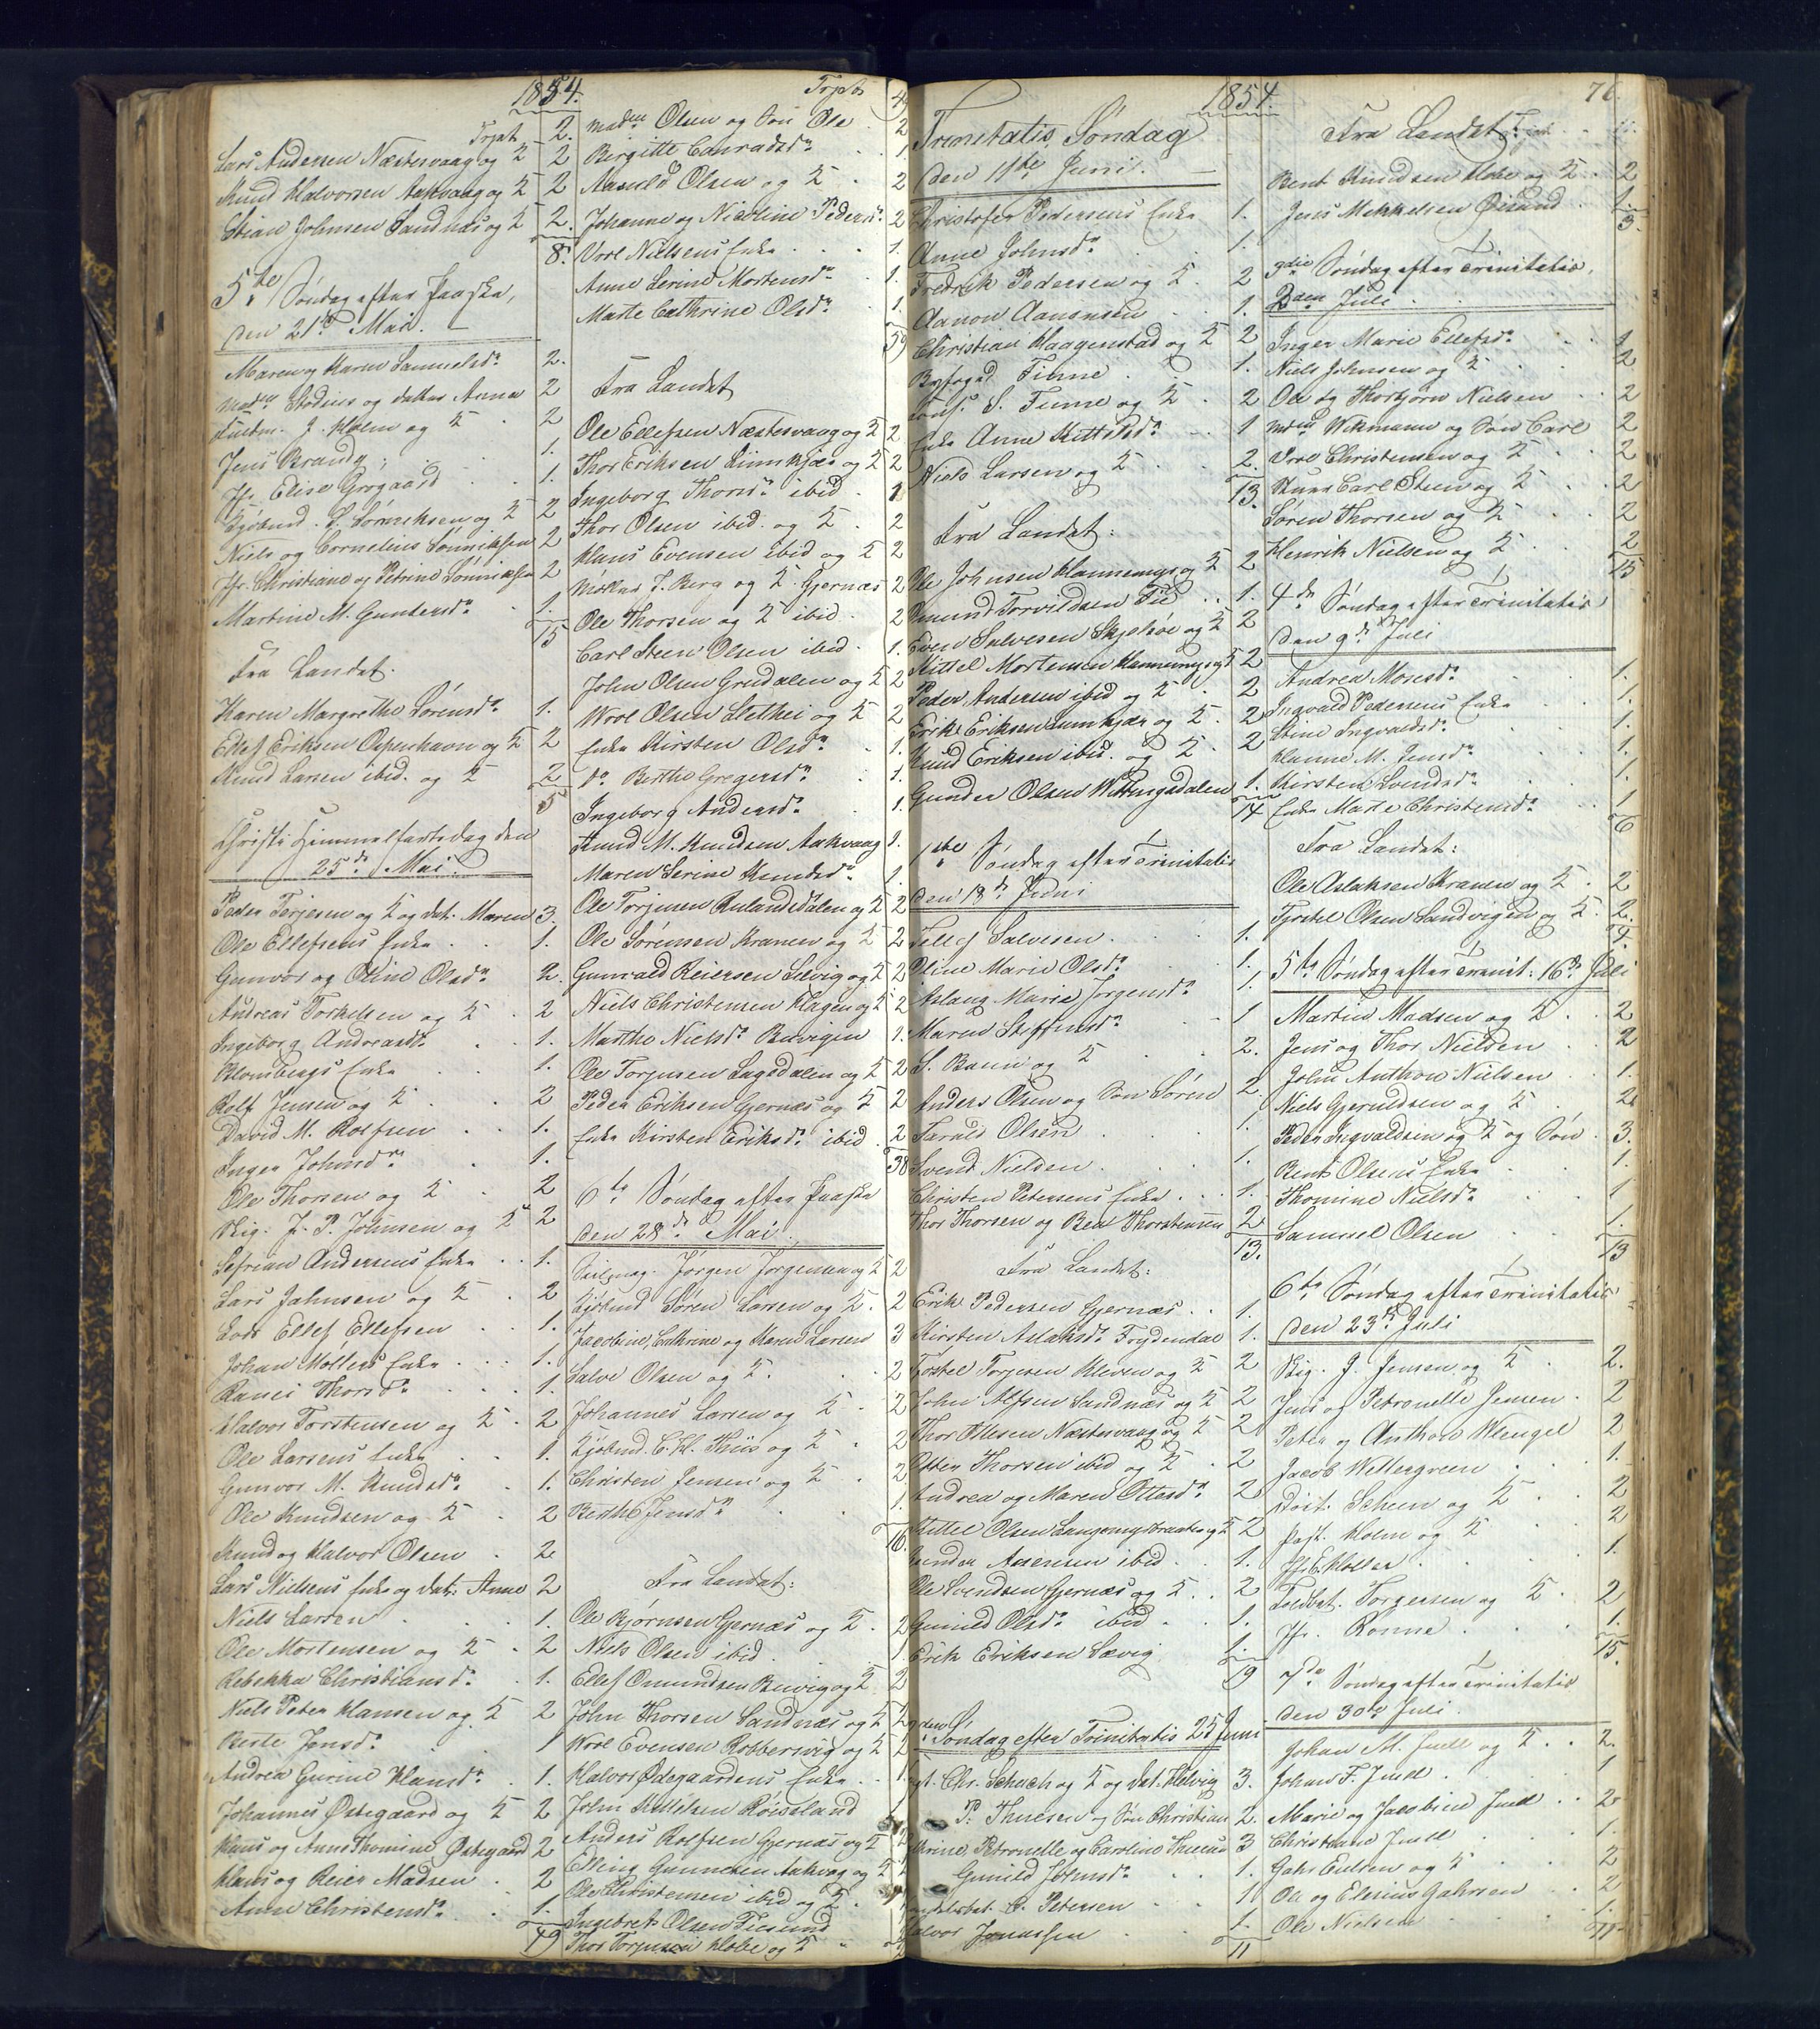 1854.
Trpt. 2.
Lars Andersen Næstesvaag og K 2
Knud Halvorsen Aakvaag og K 2
Stian Johnsen Sandnæs og K 2.
8.
5te Søndag efter Paaske,
den 21de Mai.
Maren og Karen Samuelsdr 2.
Madm Stodius og datter Anna 2
J. Holm og K 2
Jens Brandy 1.
Jfr. Elise Grøgaard 1.
Kjøbmd. S. Sørensen og K 2
Niels og Cornelius Sønniksen 2
Jfr. Christiane og Petrine Sønniksen 2
Martine M. Gundersdr 1.
15
Fra Landet.
Karen Margrethe Sørensdr 1.
Ellef Eriksen Ospenhavn og K 2
Knud Larsen ibid. og K 2
5
Christi Himmelfartsdag den
25de Mai.
Peder Terjesen og K og dat. Maren 3.
Ole Ellefsens Enke 1.
Gunvor og Oline Olsdr 2.
Andreas Torkelsen og K 2
Ingeborg Andreasdr 1.
Blombergs Enke 1.
Rolf Jensen og K 2
David M. Rolfsen 1.
Inger Johnsdr 1.
Ole Thorsen og K 2
Skig. J. P. Johnsen og K 2
Sefrian Andersens Enke 1.
Lars Jahnsen og K 2
Lods Ellef Ellefsen 1.
Johan Møllers Enke 1.
Ranei Thorsdr 1.
Halvor Torstensen og K 2
Ole Larsens Enke 1.
Gunvor M. Knudsdr 1.
Ole Knudsen og K 2
Knud og Halvor Olsen 2
Lars Nielsens Enke og dat: Anne 2
Niels Larsen 1.
Ole Mortensen og K 2
Rebekka Christiansdr 1.
Niels Peter Hansen og K 2
Berte Jensdr 1
Andrea Gurine Hansdr 1.
Johannes Østegaard og K 2
Hans og Anne Thomine Østegaard 2
Hans og Reier Madsen 2
Anne Christensdr 1.
49
Trpt 49
Madm Olsen og Søn Ole 2
Bergitte Conradsdr 1.
Aaneld Olsen og K 2
Johanne og Nicoline Pedersdr 2
Vorl Nielsens Enke 1.
Anne Serine Mortensdr 1.
Marte Cathrine Olsdr 1.
59
Fra Landet
Ole Ellefsen Næstesvaag og K 2
Thor Eriksen Limkjær og K 2
Ingeborg Thorsdr ibid 1
Thor Olsen ibid. og K 2
Hans Evensen ibid og K 2
Møller J. Berg og K. Gjernæs 2
Ole Thorsen og K ibid 2
Carl Steen Olsen ibid 1.
John Olsen Grudalen og K 2
Wrol Olsen Slethei og K 2
Enke Kirsten Olsdr 1.
do Berthe Gregersdr 1.
Ingeborg Andersdr 1.
Aanund M. Knudsen Aakvaag 1.
Maren Serine Knudsdr 1.
Ole Torjusen Rulandsdalen og K 2
Ole Sørensen Kranen og K 2
Gunvald Reiersen Sævig og K 2
Niels Christensen Hagen og K 2
Marthe Nielsdr Buvigen 1.
Ole Torjusen Lagsdalen og K 2
Peder Eriksen Gjernæs og K 2
Enke Kirsten Eriksdr ibid 2
38
6te Søndag efter Paaske
den 28de Mai.
Jørgen Jørgensen og K 2
Kjøbmd Søren Larsen og K 2
Jacobine, Cathrine og Karen Larsen 3
Salve Olsen og K 2
Johannes Larsen og K 2
Kjøbmd. C. H. Thiis og K 2
Christen Jensen og K 2
Berthe Jensdr 1.
16.
Fra Landet:
Ole Bjørnsen Gjernæs og K 2
Niels Olsen ibid 1
Ellef Omundsen Buvig og K 2
John Thorsen Sandnæs og K 2
Wrol Evensen Robbersvig og K 2
Halvor Ødegaardens Enke 1
John Kittilsen Røisland 1
Anders Rolfsen Gjernæs og K 2
Elling Gunnersen Aakvaag og K 2
Ole Christensen ibid og K
Ingebret Olsen Tiesund
Thor Torjusen Hobe og K 2
1854.
Trinitatis Søndag
den 11te Juni.
Christofer Pedersens Enke 1.
Anne Johnsdr 1.
Fredrik Pedersen og K 2
Aanon Aanonsen 1.
Christian Haagenstad og K 2
Byfoged Finne 1.
Cons. S. Finne og K 2
Enke Anne Kittelsdr 1
Niels Larsen og K 2.
13.
Fra Landet:
Ole Johnsen Hannemyr og K 2
Omund Torvildsen Tie 1.
Even Salvesen Skjelsøe og K 2
Kittel Mortensen Hannemyr og K 2
Peder Andersen ibid og K 2
Erik Eriksen Limkjær og K 2
Knud Eriksen ibid. og K 2
Gunder Olsen Wittingsdalen 1.
14
1ste Søndag efter Trinitatis
den 18de Juni
Tellef Salvesen 1.
Oline Marie Olsdr 1.
Aslaug Marie Jørgensdr 1.
Maren Steffensdr 1
S. Bann og K 2.
Anders Olsen og Søn Søren 2.
Tarald Olsen 1.
Svend Nielsen 1.
Christen Petersens Enke 1.
Thor Thorsen og Bent Thorstensen 2
13.
Fra Landet:
Erik Pedersen Gjernæs 1.
Kirsten Aslaksdr Frydendal 1.
Kjøstel Torjesen Kleven og K 2
John Alfsen Sandnæs og K 2
Thor Ottesen Næstesvaag og K 2
Otter Thorsen ibid og K 2
Andrea og Maren Ottersdr 2
Kittel Olsen Langemyrbraaten og K 2
Gunder Aasensen ibid 1.
Ole Svendsen Gjernæs og K 2
Gunild Olsdr ibid 1.
Erik Eriksen Sævig 1.
19
2den Søndag efter Trinitatis 25 Juni
Chr. Schach og K og dat. Helvig 3.
P. Thuesen og Søn Christian 2.
Petronelle og Caroline Thuesen 3
Gunild Johnsdr 1.
P. Petersen 1
Halvor Jonassen 1.
11
76.
Fra Landet:
Bent Knudsen Hobe og K 2
Jens Mekkelsen Øisund 1.
3.
3die Søndag efter Trinitatis,
2den Juli
Inger Marie Ellefsdr 1
Niels Johnsen og K 2
Ole og Thorbjørn Nielsen 2
Mdm Wikmann og Søn Carl 2
Vrol Christensen og K 2
Stuer Carl Steen og K 2
Søren Thorsen og K 2
Henrik Nielsen og K 2
15
4de Søndag efter Trinitatis,
den 9de Juli
Andrea Monsdr 1.
Ingvald Pedersens Enke 1.
Stine Ingvaldsdr 1.
Hanne M. Jensdr 1.
Kirsten Svendsdr 1.
Enke Marte Christensdr 1
6
Fra Landet:
Ole Aslaksen Kranen og K 2
Tjøstel Olsen Sandvigen og K 2.
4.
5te Søndag efter Trinit: 16de Juli
Martin Madsen og K 2
Jens og Thor Nielsen 2
John Anthon Nielsen 1.
Niels Gjeruldsen og K 2
Peder Ingvaldsen og K og Søn 3.
Bent Olsens Enke 1.
Thomine Nielsdr 1
Samuel Olsen 1.
13
6te Søndag efter Trinitatis
den 23de Juli
Skig. J. Jensen og K 2.
Jens og Petronelle Jensen 2
Peter og Anthon Wengel 2
Jacob Wettergreen 1.
Dist. Scheen og K 2
Past. Holm og K 2
Jfr. E. Møller 1.
Toldbet. Torgersen og K 2
Jfr. Rønne 1.
15.
7de Søndag efter Trinitatis
den 30te Juli.
Johan M. Juell og K 2.
Johan F. Juell 1
Marie og Jacobine Juell 2
Christiane Juell 1.
Gahr Eulsen og K 2
Ole og Elesius Gahrsen 2
Ole Nielsen 1.
11